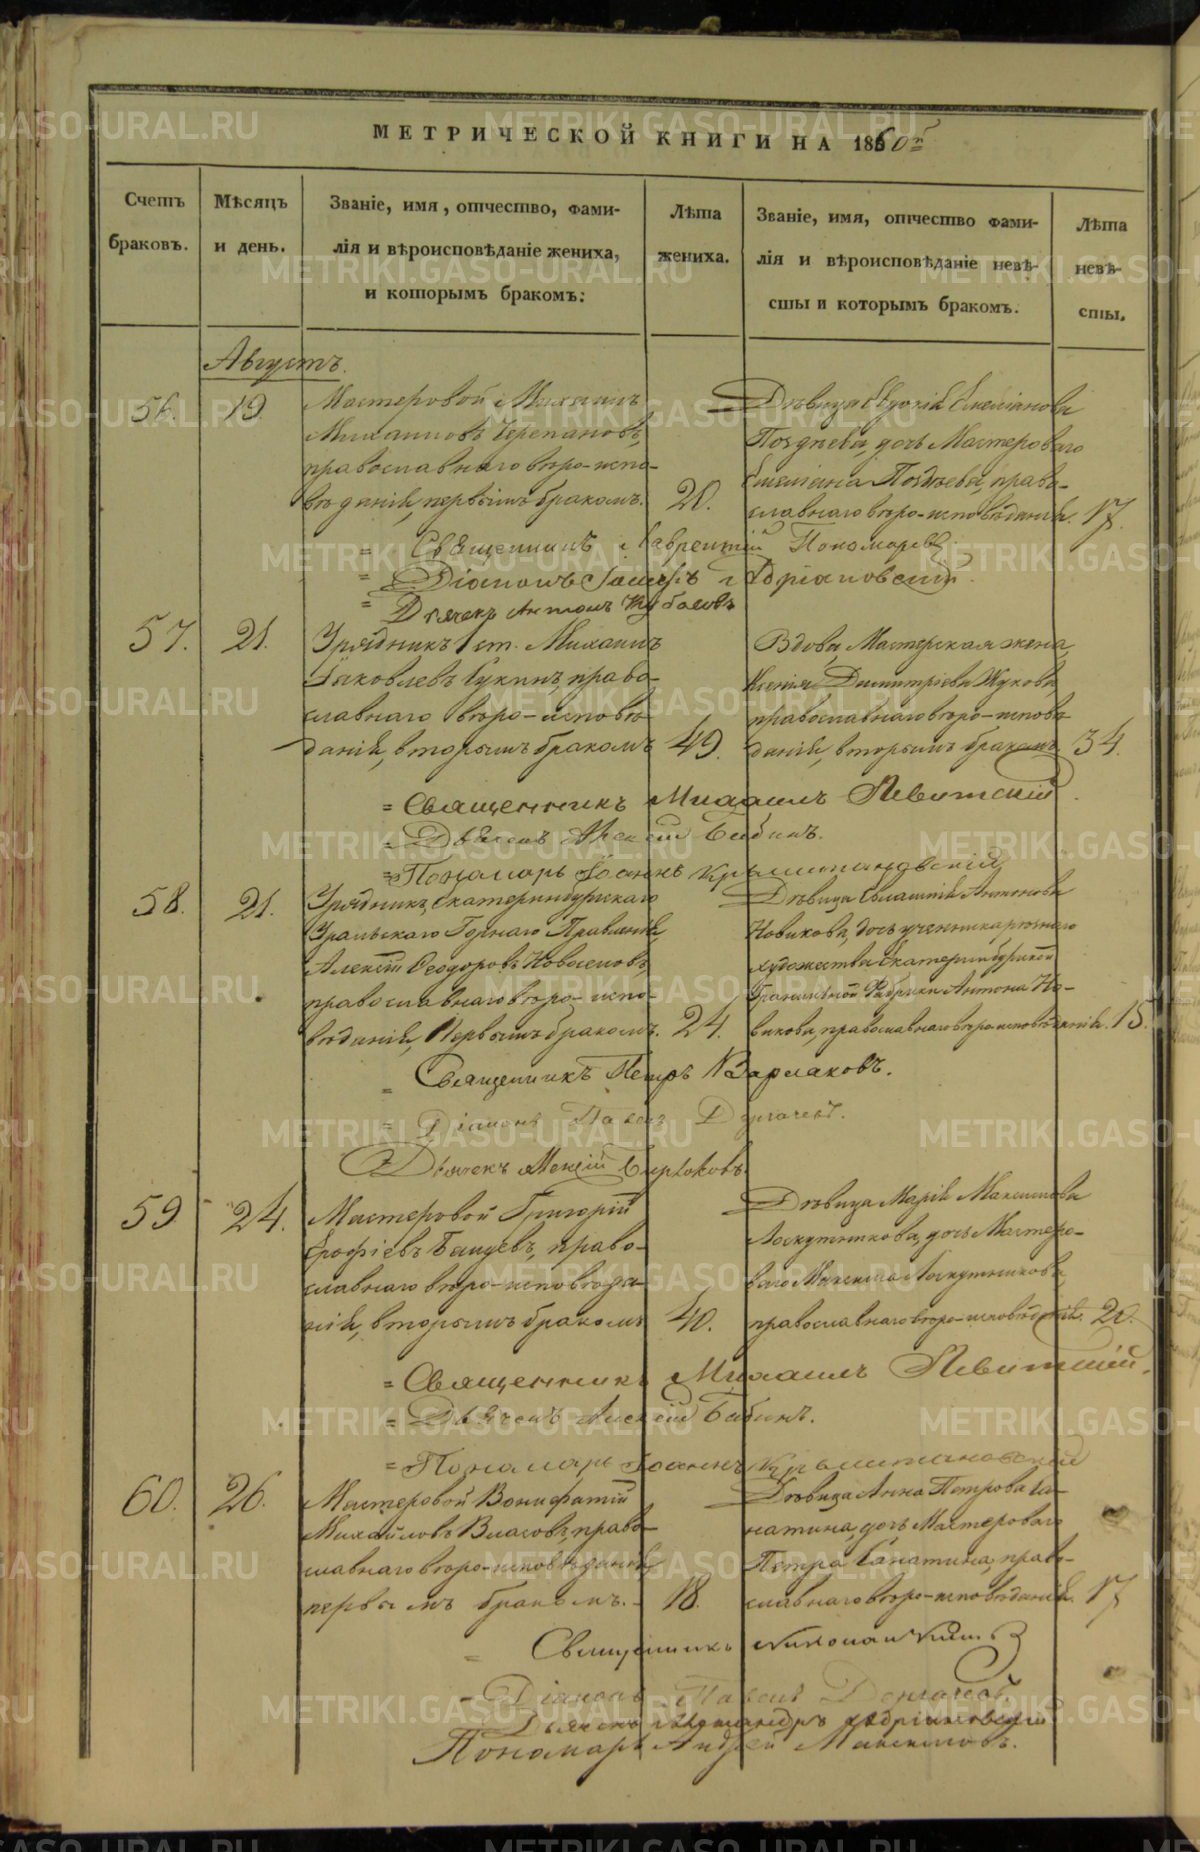 МЕТРИЧЕСКОЙ КНИГИ НА 1860й
Счетъ браковъ.
Мѣсяцъ и день.
Званіе, имя, отчество, фами-
лія и вѣроисповѣданіе жениха,
и которымъ бракомъ:
Лѣта жениха.
Званіе, имя, отчество фами-
лія и вѣроисповѣданіе невѣ-
сты и которымъ бракомъ.
Лѣта невѣ-
сты.
Августъ.
56. 19
Мастеровой Михаилъ
Михаиловъ Черепановъ,
православнаго вѣро-испо-
вѣданія, первымъ бракомъ. 20.
Дѣвица Евдокія Емеліанова
Позднева, дочь Мастероваго
Емеліана Позднева, право-
славнаго вѣро-исповѣданія. 17.
= Священникъ Лаврентій Пономаревъ
= Діаконъ Адріановскій.
= Дьячекъ Антонъ
57. 21.
Урядникъ 1 ст. Михаилъ
Яковлевъ Кукинъ, право-
славнаго вѣро-исповѣ-
данія, вторымъ бракомъ 49.
Вдова, Мастерская жена,
Ксенія Димитріева Жукова,
православнаго вѣро-исповѣ-
данія, вторымъ бракомъ. 34.
= Священникъ Михаилъ Левитскій.
= Дьячекъ Алексій Бабинъ.
= Пономарь Іоаннъ
58. 21.
Урядникъ Екатеринбургскаго
Уральскаго Горнаго Правленія,
Алексій Ѳеодоровъ Новоселовъ,
православнаго вѣро-испо-
вѣданія, Первымъ бракомъ. 24.
Дѣвица Евлампія Антонова
Новикова, дочь ученика
художества Екатеринбургской
Гранильной Фабрики Антона Но-
викова, православнаго вѣроисповѣданія. 15.
= Священникъ Петръ Варлаковъ.
= Діаконъ Павелъ Дергачевъ.
Дьячекъ Алексій Бирюковъ.
59 24.
Мастеровой Григорій
Ерофіевъ право-
славнаго вѣро-исповѣда-
нія, вторымъ бракомъ 40.
Дѣвица Марія Максимова
Лоскутникова, дочь Мастеро-
ваго Максима Лоскутникова
православнаго вѣро-исповѣданія. 20.
= Священникъ Михаилъ Левитскій.
= Дьячекъ Алексій Бабинъ.
= Пономарь Іоаннъ
60. 26.
Мастеровой Вонифатій
Михайловъ Власовъ, право-
славнаго вѣро-исповѣданія
первымъ бракомъ. 18.
Дѣвица Анна Петрова Га-
натина, дочь Мастероваго
Петра Ганатина, право-
славнаго вѣро-исповѣданія. 17
= Священникъ Николай
= Діаконъ Павелъ Дергачевъ.
Дьячекъ Александръ Адріановскій
Пономарь Андрей Максимовъ.
METRIKI.GASO-URAL.RU